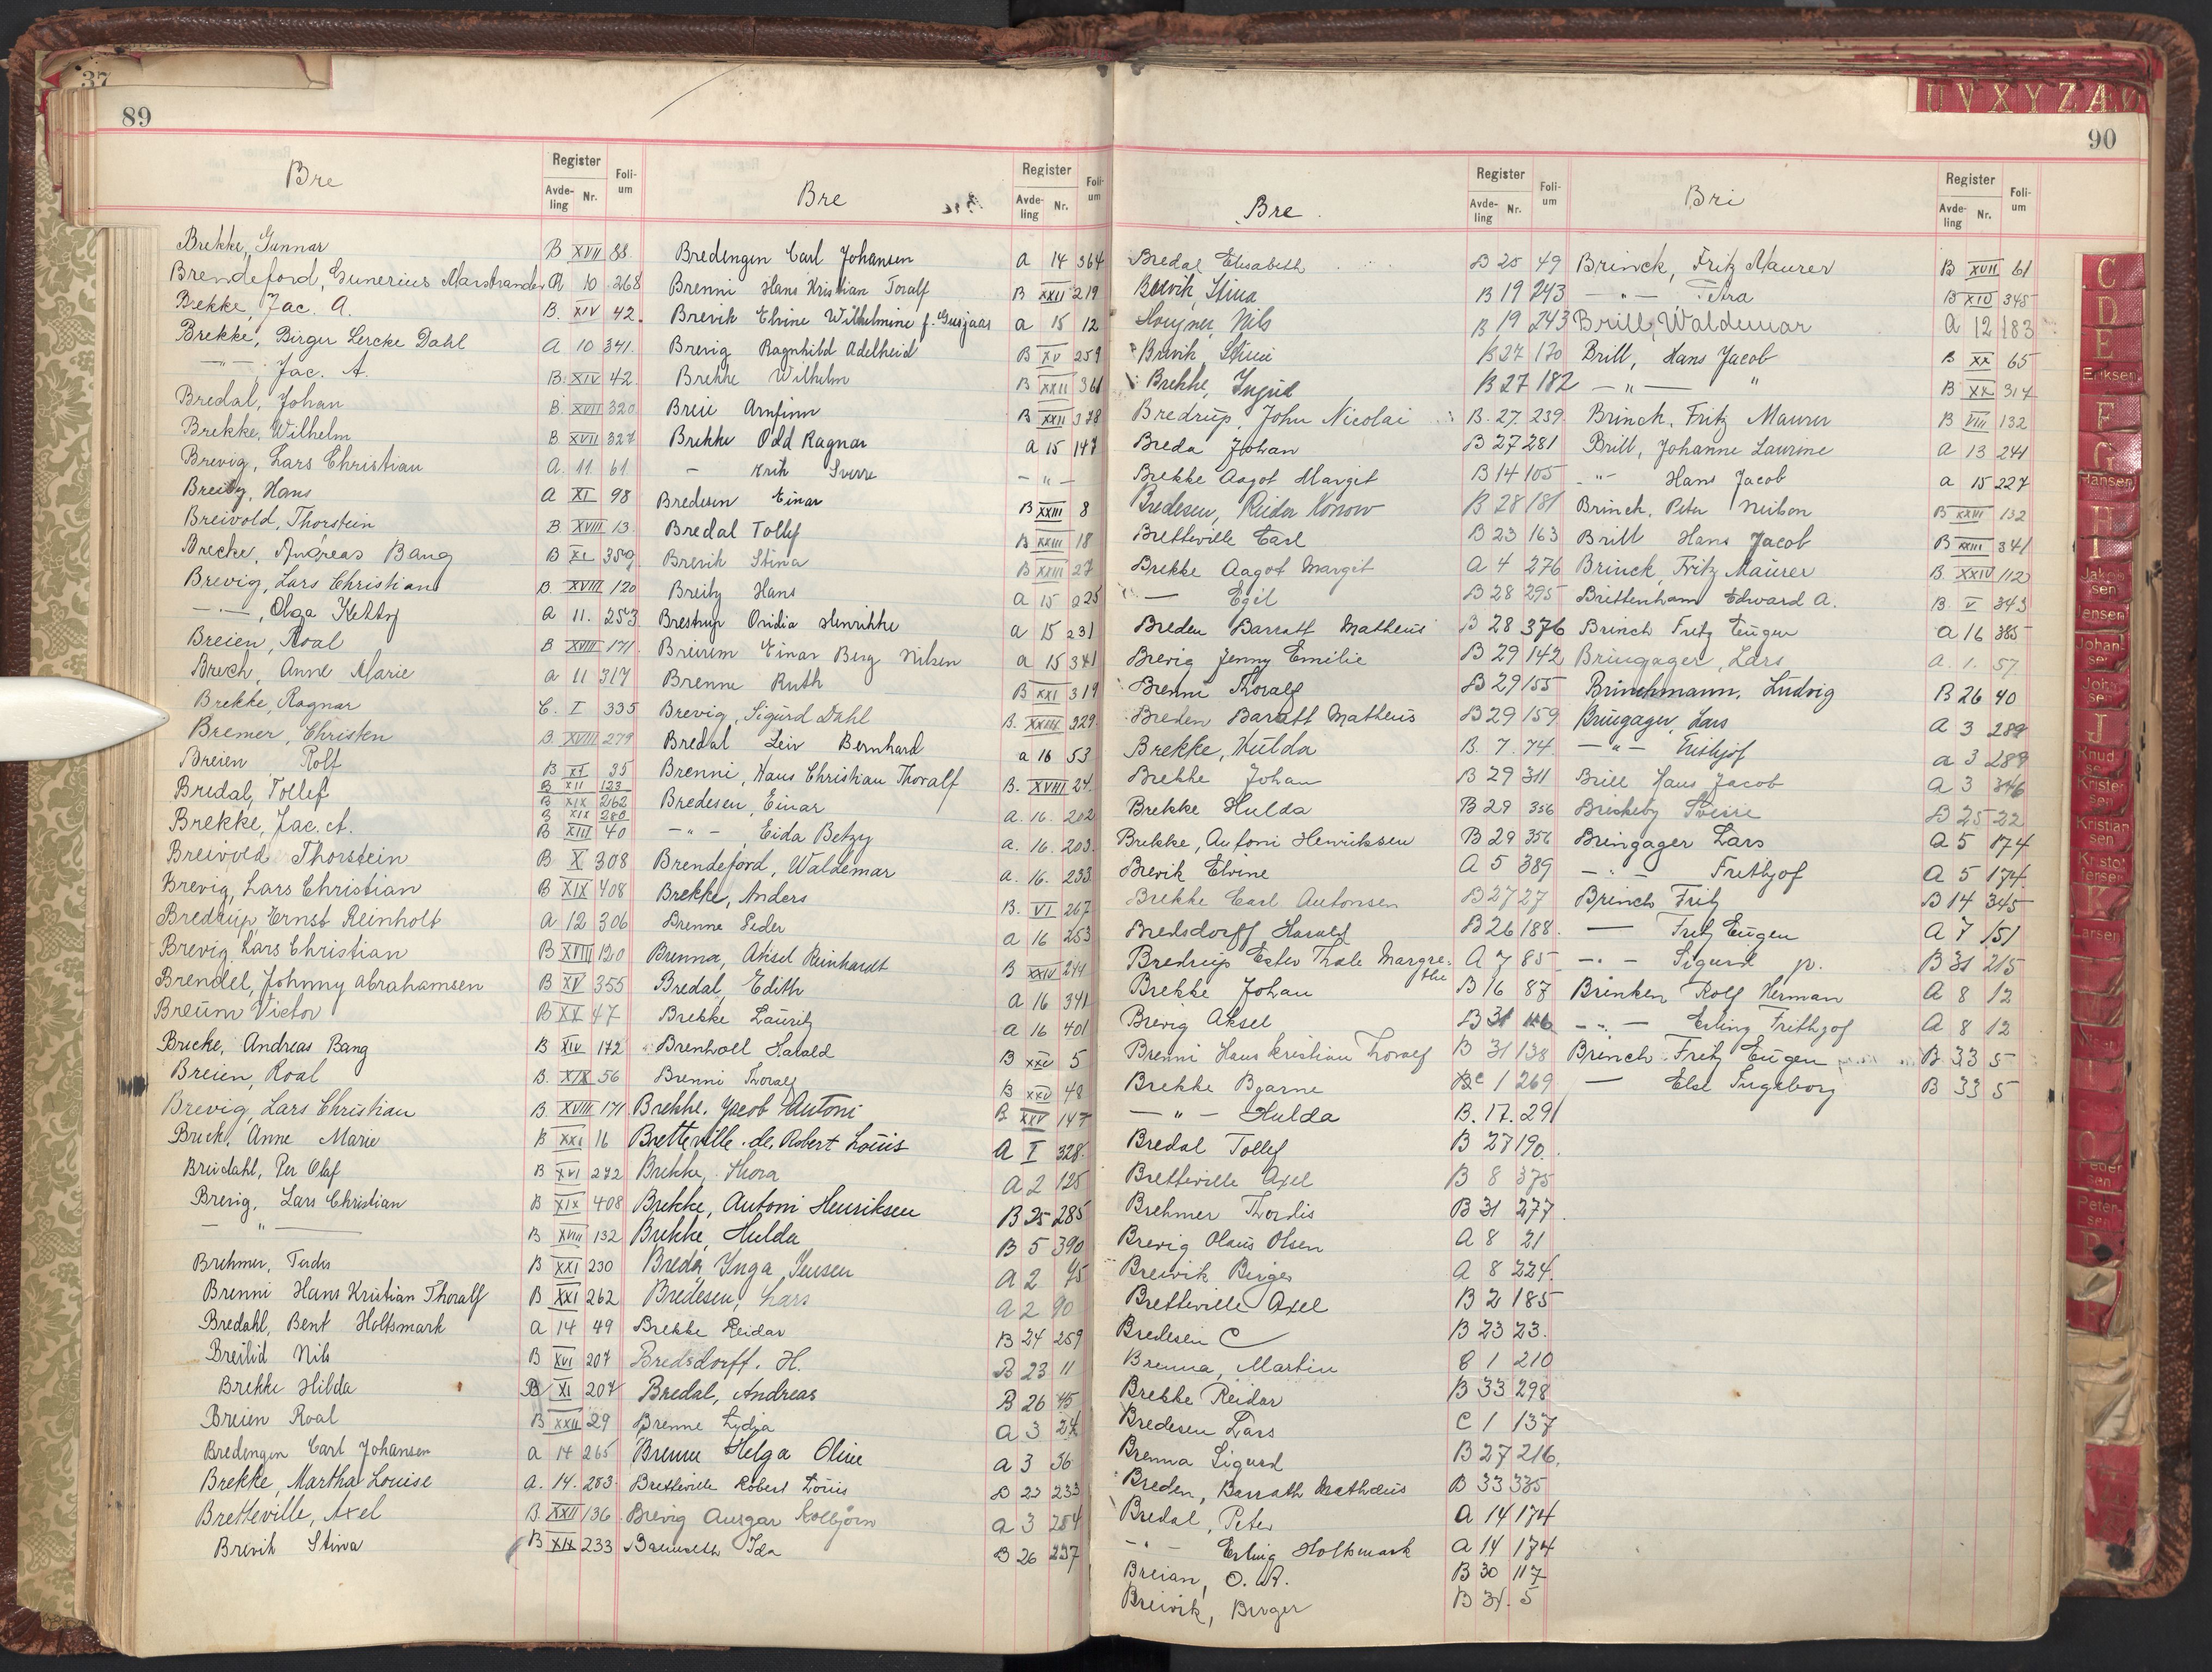 37
89
Bre
Register
Avde-ling Nr.
Foli-um
Brekke, Gunnar B XVII 88
Brendeford, Gunerius Marstrander A 10 268
Brekke, Jac. A. B. XIV 42.
Brekke, Birger Lercke Dahl A 10 341.
—"— Jac. A. B. XIV 42
Bredal, Johan B. XVII 320
Brekke, Wilhelm B XVII 327
Brevig, Lars Christian A. 11 61
Breitz, Hans A XI 98
Breivold, Thorstein B XVIII 13.
Brecke, Andreas Bang B XI 359
Brevig, Lars Christian B XVIII 120
—"—, Olga Ketty A 11. 253
Breien, Roal B XVIII 171.
Brech, Anne Marie a 11 317
Brekke, Ragnar C. I 335
Bremer, Christen B XVIII 279
Breien Rolf B XI 35
Bredal, Tollef B XII 123 B XIX 262
Brekke, Jac. A. B XIX 280 B XIII 40
Breivold Thorstein B X 308
Brevig, Lars Christian B XIX 408
Bredrup, Ernst Reinholt A 12 306
Brevig Lars Christian B XVIII 120
Brendel, Johnny Abrahamsen B XV 355
Breum Victor B XX 47
Brecke, Andreas Bang B XIV 172
Breien, Roal B. XIX 56
Brevig, Lars Christian B. XVIII 171
Brech, Anne Marie B XXI 16
Breidahl, Per Olaf B XVI 272
Brevig, Lars Christian B XIX 408
— " — B XVIII 132
Brehmer, B XXI 230
Brenni Hans Kristian Thoralf B XXI 262
Bredahl, Bent Holtsmark A 14 49
Breilid Nils B XVI 207
Brekke Hilda B XI 207
Breien Roal B XXII 29
Bredengen Carl Johansen a 14 265
Brekke, Martha Louise A. 14. 283
Bretteville, Axel B. XXII 136
Brevik Stina B XIX 233
Bre
Register
Avde-ling Nr.
Foli-um
Bredengen Carl Johansen a 14 364
Brenni Hans Kristian Toralf B XXII 219
Brevik Elvine Wilhelmine f. Gusjaas a 15 12
Brevig Ragnhild Adelheid B XV 259
Brekke Wilhelm B XXII 361
Breie Arnfinn B XXII 378
Brekke Odd Ragnar a 15 147
— Erik Sverre — " —
Bredesen Einar B XXIII 8
Bredal Tollef B XXIII 18
Brevik Stina B XXIII 27
Breitz Hans a 15 225
Brestrup Ovidia Henrikke a 15 231
Breirem Einar Berg Nilsen a 15 341
Brenne Ruth B XXI 319
Brevig, Sigurd Dahl B. XXIII 329.
Bredal Leiv Bernhard a 16 53
Brenni, Hans Christian Thoralf B. XVIII 24.
Bredesen, Einar a. 16. 202
—"— Eida Betzy a. 16. 203.
Brendeford, Waldemar a. 16. 233
Brekke, Anders B. VI 267
Brenne Peder a 16 253
Brenna, Aksel Reinhardt B XXIV 244
Bredal, Edith a 16 341
Brekke Lauritz a 16 401
Brenholl Harald B XXV 5
Brenni Thoralf B XXV 48
Brekke, Jacob Antoni B XXV 147
Bretteville. de, Robert Louis A I 328.
Brekke, Thora A 2 125
Brekke, Antoni Henriksen B 25 285
Brekke, Hulda B 5 390
Breda, Inga Jensen A 2 75
Bredesen, Lars a 2 90
Brekke Reidar B 24 259
Bredsdorff. H. B 23 11
Bredal, Andreas B 26 45
Brenne Lydja a 3 24
Brenne Helga Oline a 3 36
Bretteville Robert Louis B 23 233
Brevig Ansgar Kolbjørn a 3 284
Ida B 26 237
90
Bre.
Register
Avde-ling Nr.
Foli-um
Bredal Elisabeth B 20 49
Brevik, Stina B 19 243
Nils B 19 243
Brevik, Stina B 27 170
Brekke, Ingrid B 27 182
Bredrup, John Nicolai B. 27. 239.
Breda Johan B 27 281
Brekke Aagot Margit B 14 105
Bredesen, Reidar Konow B 28 181
Bretteville Carl B 23 163
Brekke Aagot Margit A 4 276
— Egil B 28 295
Breden Barratt Matheus B 28 376
Brevig Jenny Emilie B 29 142
Brenni Thoralf B 29 155
Breden Baratt Matheus B 29 159
Brekke, Hulda B. 7. 74.
Brekke Johan B 29 311
Brekke Hulda B 29 356
Brekke, Antoni Henriksen B 29 356
Brevik Elvine A 5 389
Brekke Carl Antonsen B 27 27
Bredsdorff Harald B 26 188.
Bredrup Ester Thale Margre-the A 7 85
Brekke Johan B 16 87
Brevig Aksel B 31 116
Brenni Hans Kristian Thoralf B 31 138
Brekke Bjarne C 1 269
— " — Hulda B. 17. 291
Bredal Tollef B 27 190.
Bretteville Axel B 8 375
Brehmer Thordis B 31 277.
Brevig Olaus Olsen A 8 21
Breivik Birger A 8 224.
Bretteville Axel B 2 185
Bredesen C B 23 23.
Brenna, Martin C 1 210
Brekke Reidar B 33 298
Bredesen Lars C 1 137
Brenna Sigurd B 27 216.
Breden, Barrath Mathdeus B 33 335
Bredal, Peter A 14 174
—"— Erling Holtsmark A 14 174
Breian, O. B 30 117
Breivik, Birger B 34. 5
Bri
Register
Avde-ling Nr.
Foli-um
Brinck, Fritz Maurer B XVII 61
—"— Petra B XIV 345
Brill, Waldemar A 12 183
Brill, Hans Jacob B XX 65
— " — " B XX 314
Brinch, Fritz Maurer B VIII 132
Brill, Johanne Laurine a 13 241
—"— Hans Jacob a 15 227
Brinch, Peter Neilson B XXIII 132
Brill Hans Jacob B XXIII 341
Brinck, Fritz Maurer B. XXIV 112
Brettenham Edward A. B. V 343
Brinch Fritz Eugen a 16 385
Bringager, Lars a. 1. 57
Brinchmann, Ludvig B 26 40
Bringager, Lars A 3 289
—"— Frithjof a 3 289
Brill Hans Jacob A 3 346
Briskeby Sverre B 25 22
Bringager Lars A 5 174
—"— Frethjof A 5 174.
Brinch Fritz B 14 345
— Fritz Eugen A 7 151
—"— Sigurd jr. B 31 215
Brinken Rolf Herman A 8 12
—"— Erling Frithjof A 8 12
Brinch Fritz Eugen B. 33 5
— Else Ingeborg B 33 5
U V X Y Z Æ Ø
C
D
E
Eriksen
F
G
Hansen
H
I
Jakobsen
Jensen
Johansen
Johnsen
J
Knudsen
Kristensen
Kristiansen
Kristoffersen
K
Larsen
Pedersen
Petersen